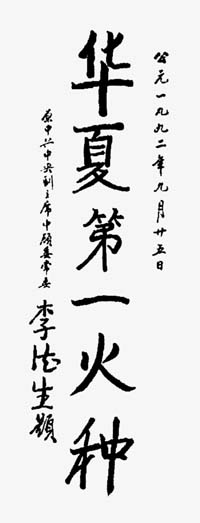 公元一九九二年九月廿五日
华夏第一火种
原中共中央副主席中顾委常委
李德生题